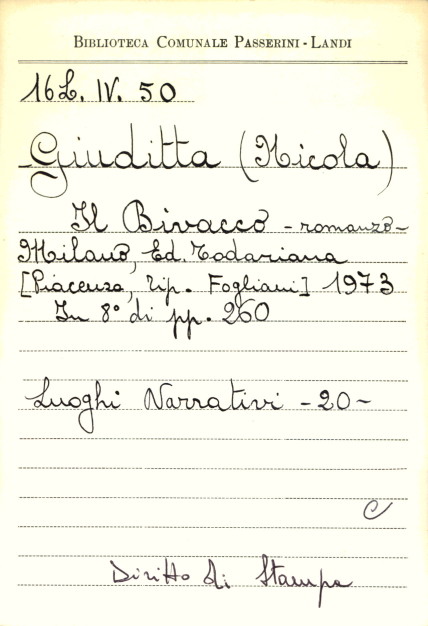 BIBLIOTECA COMUNALE PASSERINI - LANDI
16L. IV. 50
Giuditta (Nicola)
Il Bivacco - romanzo -
Milano, Ed. Todariana
[Piacenza, Tip. Fogliani] 1973
In 8° di pp. 260
Luoghi Narrativi - 20 -
C
Diritto di Stampa